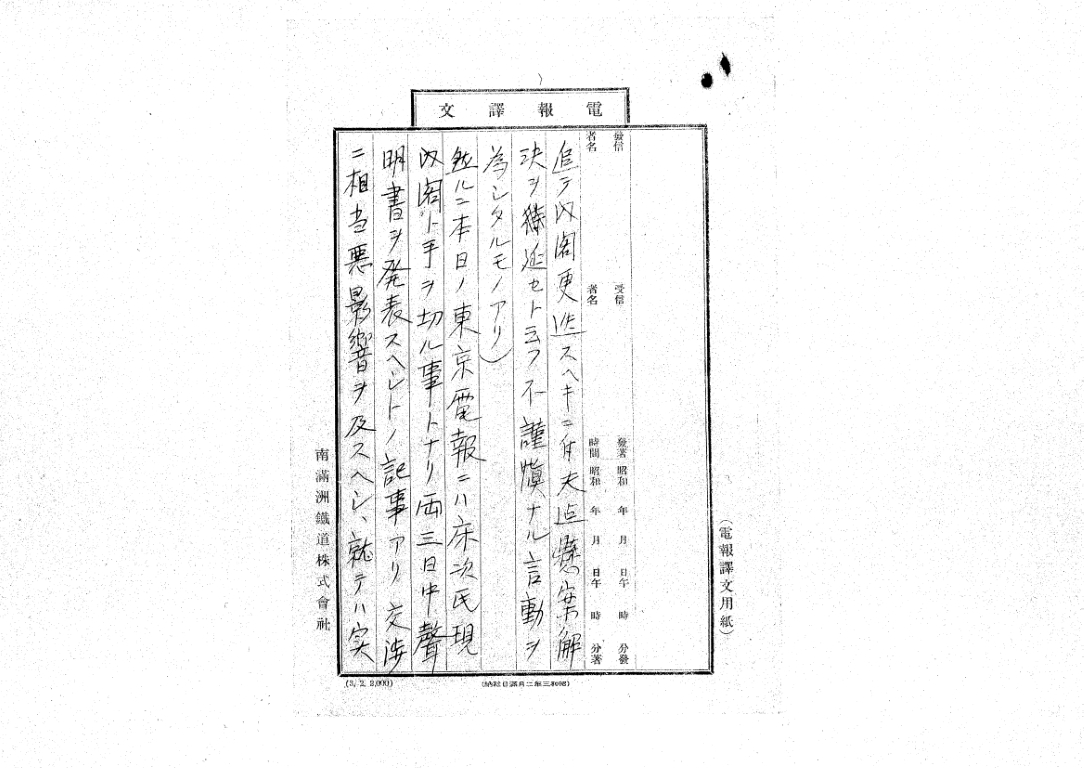 電報譯文
發信者名
受信者名
發著時間 昭和 年 月 日午 時 分發
昭和 年 月 日午 時 分著
追テ内閣更迭スヘキニ付夫迄懸案解
決ヲ猶延セト云フ不謹慎ナル言動ヲ
為シタルモノアリ)
然ルニ本日ノ東京電報ニハ床次氏現
内閣ト手ヲ切ル事トナリ両三日中聲
明書ヲ発表スヘシトノ記事アリ交渉
ニ相当悪影響ヲ及スヘシ、就テハ実
(電報譯文用紙)
南滿洲鐵道株式會社
(3, 2, 3,000)